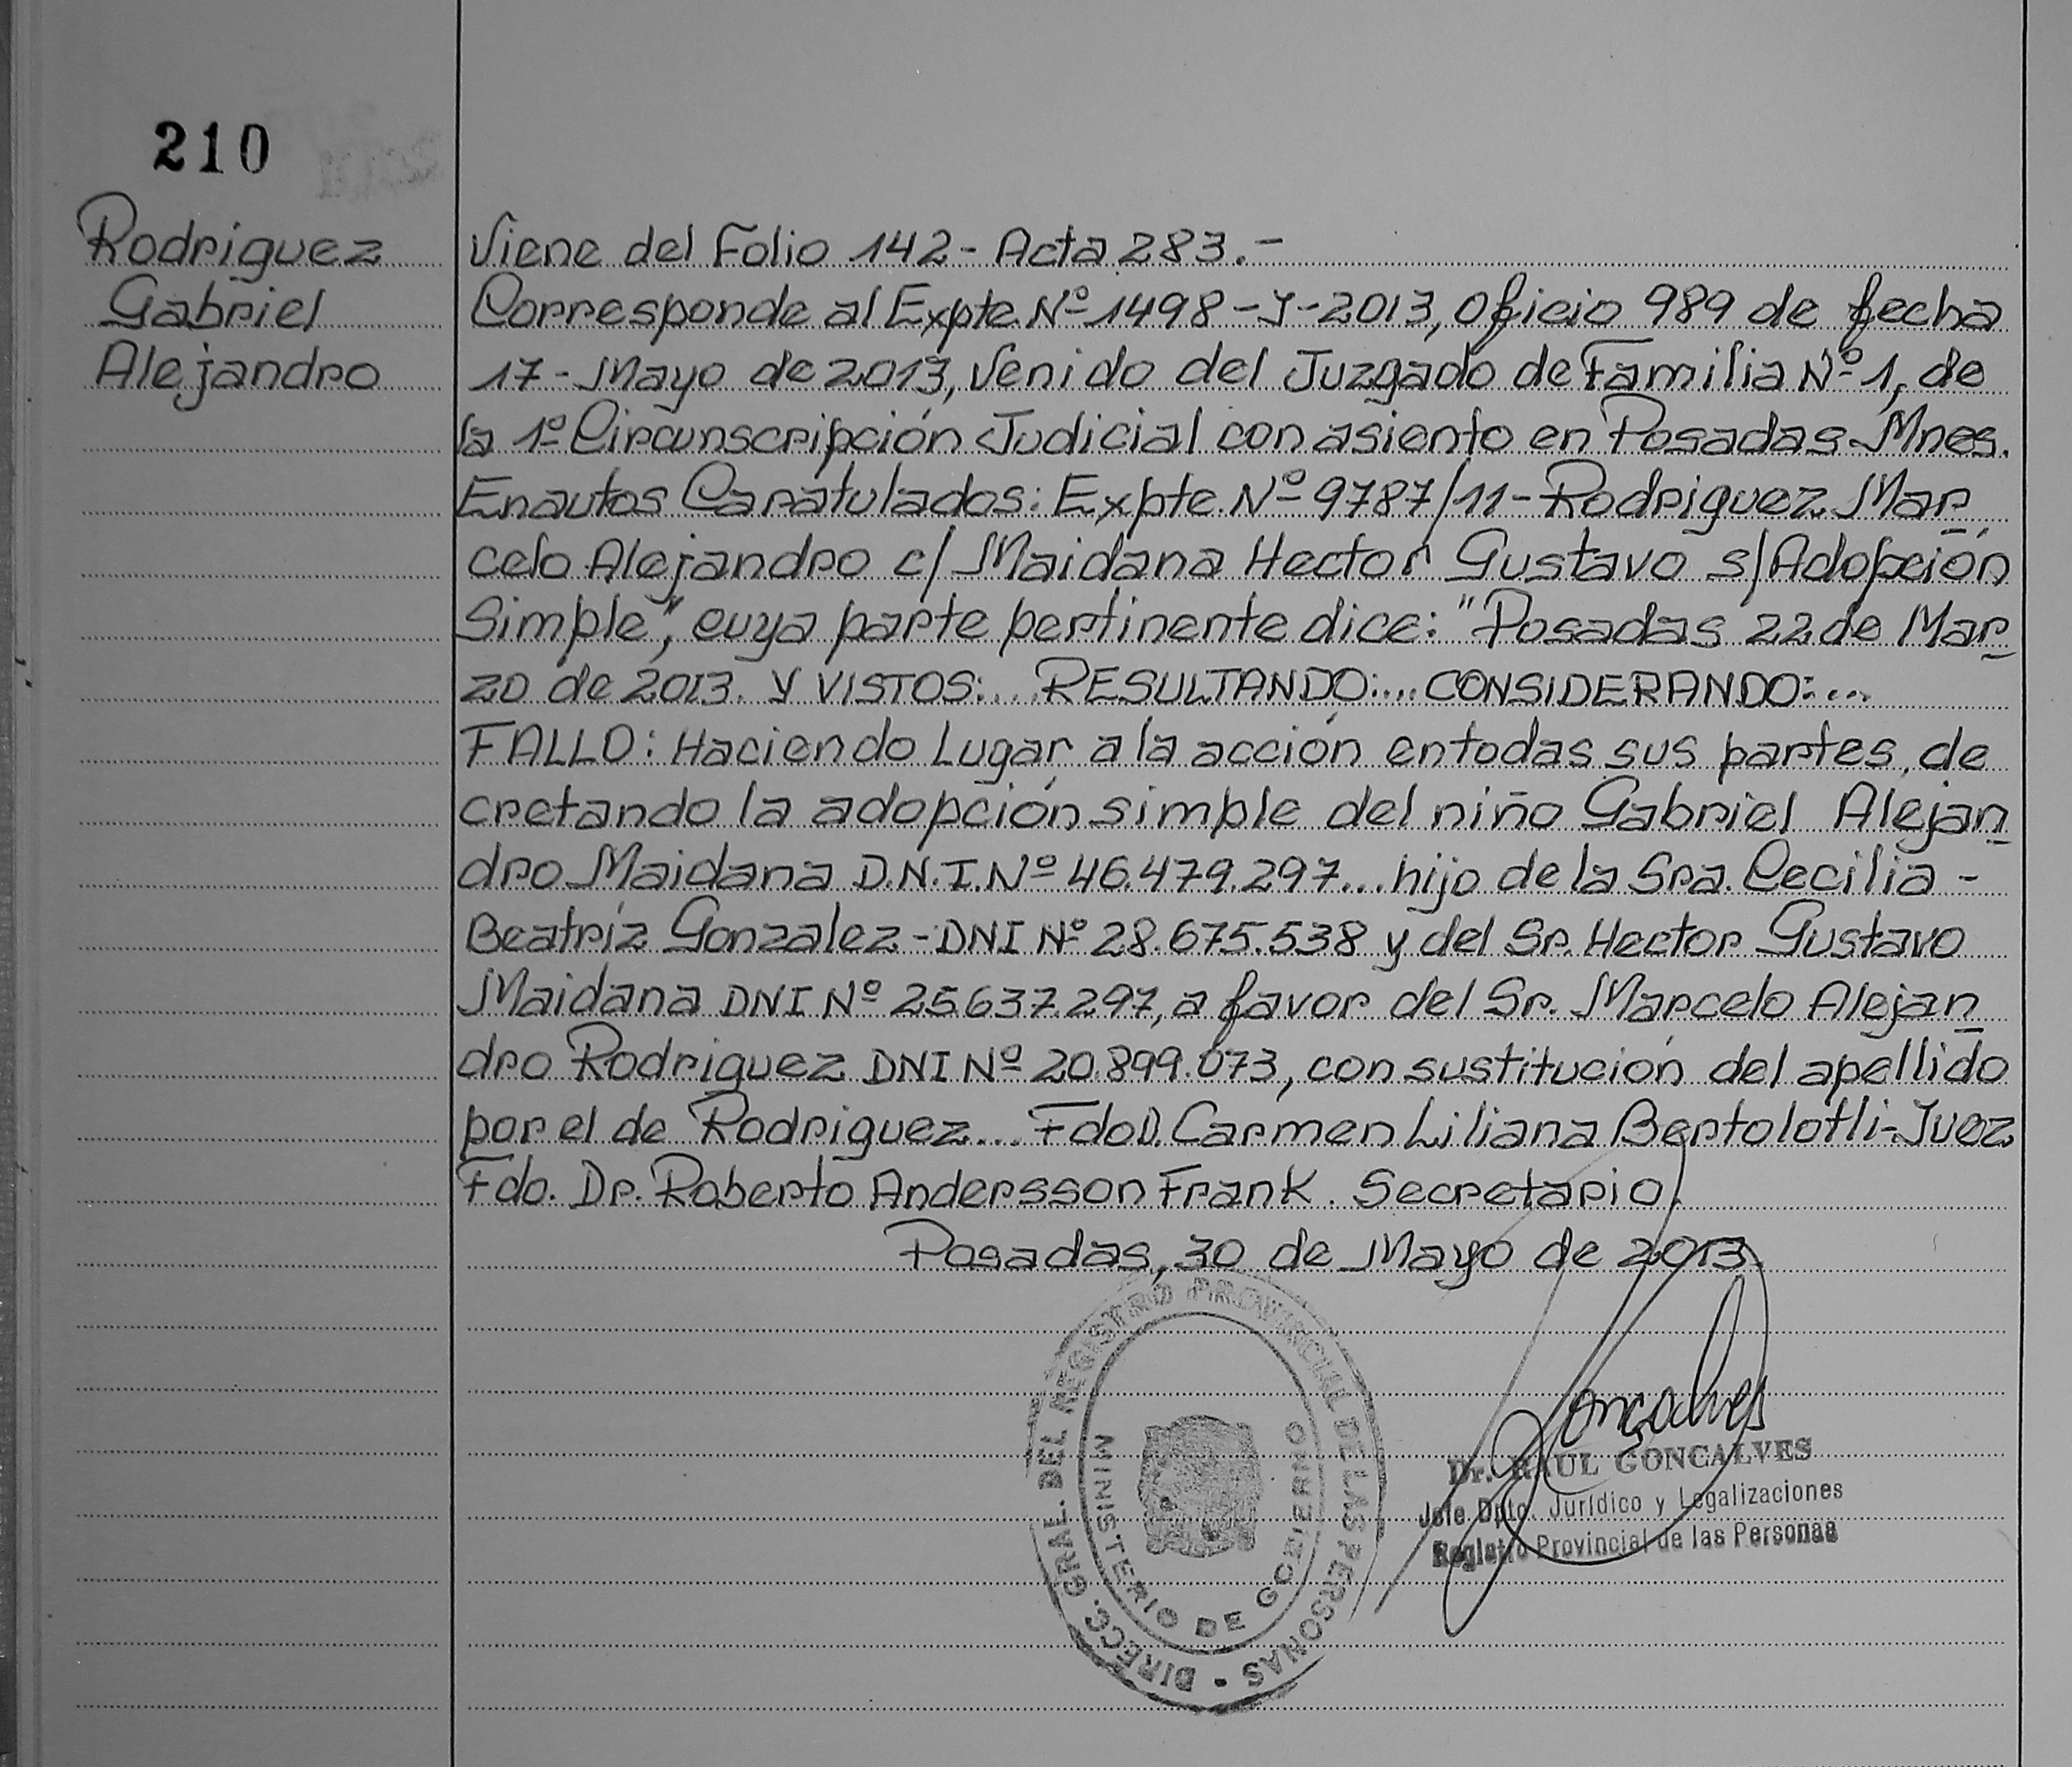 210
Rodriguez
Gabriel
Alejandro
Viene del Folio 142- Acta 283.-
Corresponde al Expte Nº 1498-J-2013, Oficio 989 de fecha
17- Mayo de 2013, Venido del Juzgado de Familia Nº 1, de
la 1º Circunscripción Judicial con asiento en Posadas-Mnes.
En autos Caratulados: Expte. Nº 9787/11- Rodriguez Mar
celo Alejandro c/ Maidana Hector Gustavo s/Adopción
Simple", cuya parte pertinente dice: "Posadas 22 de Mar
zo de 2013. Y VISTOS:... RESULTANDO:... CONSIDERANDO:...
FALLO: Haciendo Lugar a la acción en todas sus partes, de
cretando la adopción simple del niño Gabriel Alejan
dro Maidana D.N.I. Nº 46.479.297... hijo de la Sra. Cecilia -
Beatriz Gonzalez - DNI Nº 28.675.538 y del Sr. Hector Gustavo
Maidana DNI Nº 25.637.297, a favor del Sr. Marcelo Alejan
dro Rodriguez DNI Nº 20.899.073, con sustitución del apellido
por el de Rodriguez... Fdo D. Carmen Liliana Bertolotli-Juez
Fdo. Dr. Roberto Andersson Frank. Secretario.
Posadas, 30 de Mayo de 2013.
DIRECC. GRAL. DEL REGISTRO PROVINCIAL DE LAS PERSONAS
MINISTERIO DE GOBIERNO
Gonçalves
Dr. RAUL GONCALVES
Jefe Dpto. Jurídico y Legalizaciones
Registro Provincial de las Personas